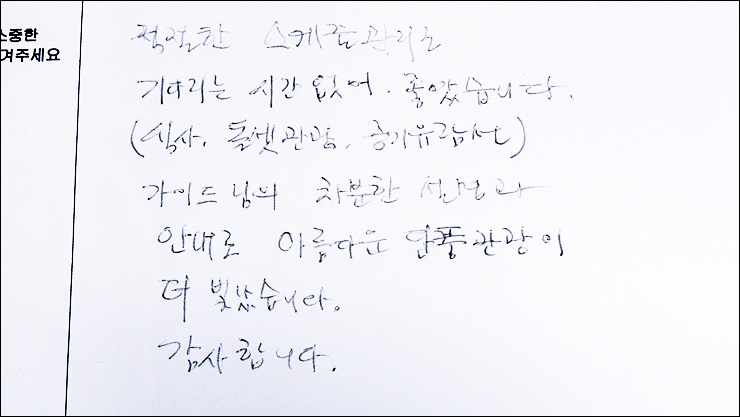 소중한
겨주세요
적절한 스케쥴관리로
기다리는 시간 없어. 좋았습니다.
(식사, 돌셋관광, 증기유람선)
가이드님의 차분한 설명과
안내로 아름다운 단풍관광이
더 빛났습니다.
감사합니다.